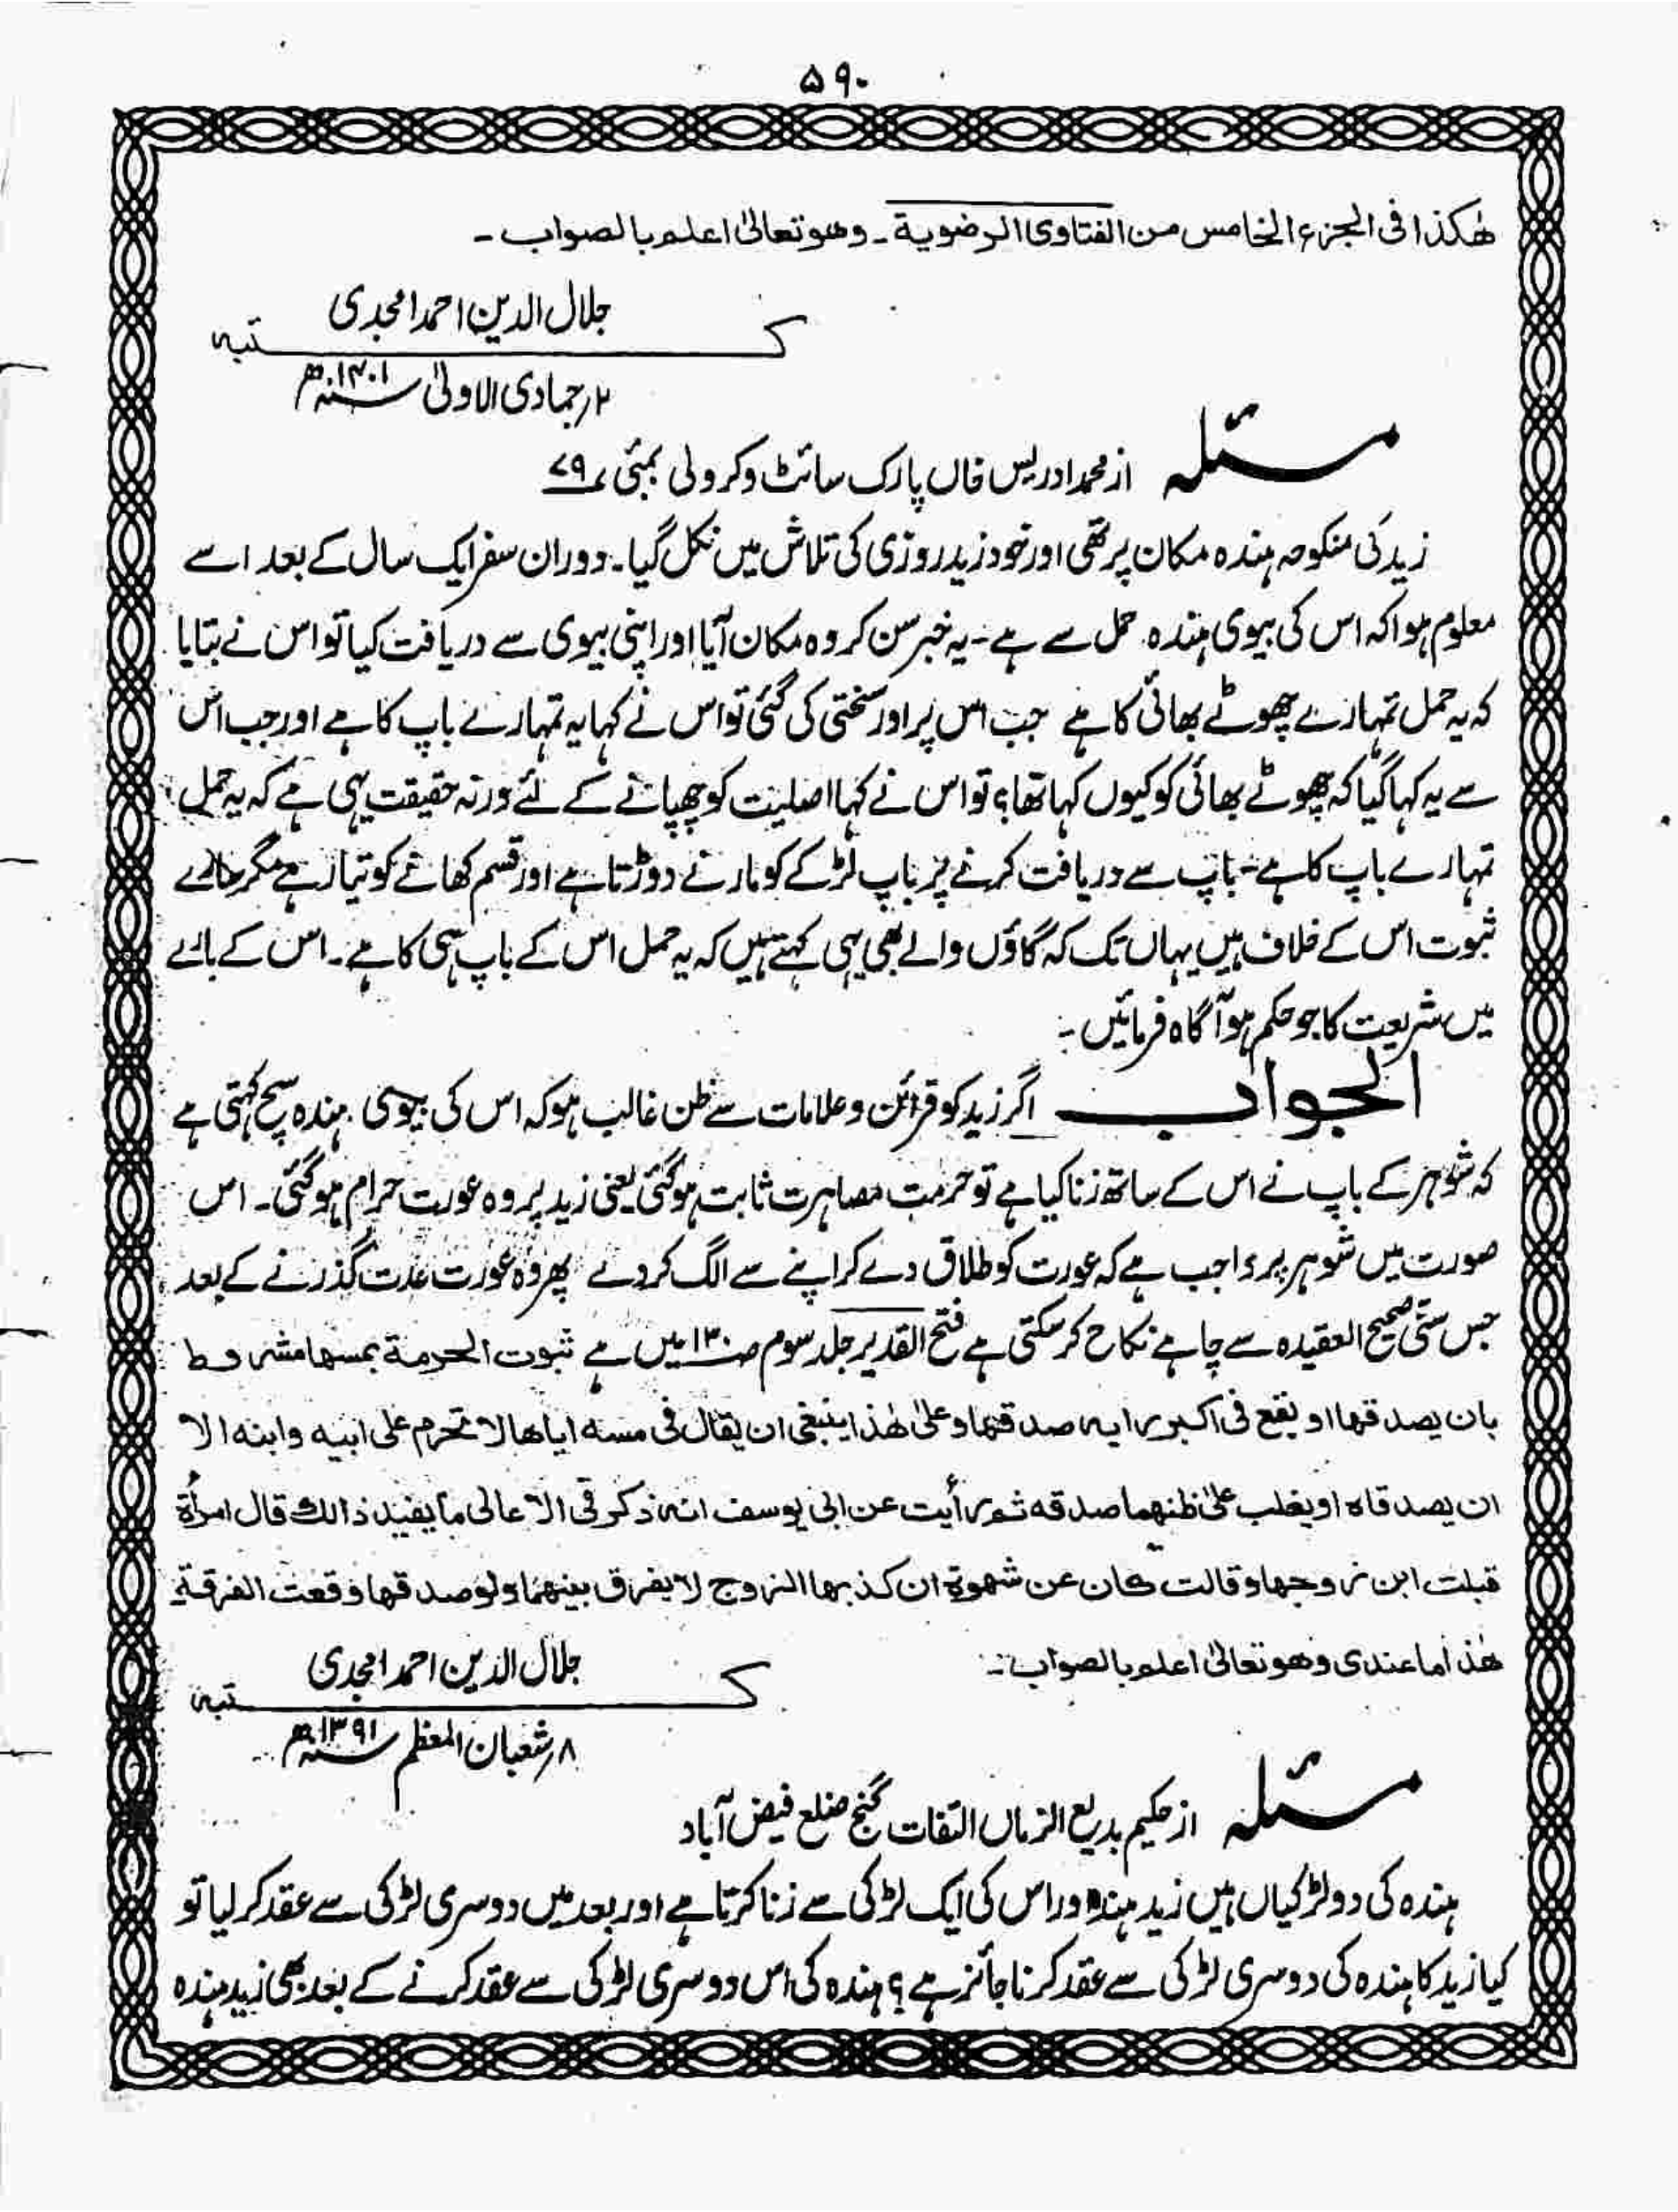 ۵۹۰
ھٰکذا فی الجزء الخامس من الفتاوی الرضویة ۔ وھو تعالیٰ اعلم بالصواب ۔
جلال الدین احمد امجدی
کتبہ
۲؍جمادی الاولیٰ سنہ۱۴۰۱ھ
مسئلہ از محمد ادریس خاں پارک سائٹ وکرولی بمبئی ۷۹
زید کی منکوحہ ہندہ مکان پر تھی اور خود زید روزی کی تلاش میں نکل گیا۔ دوران سفر ایک سال کے بعد اسے
معلوم ہوا کہ اس کی بیوی ہندہ حمل سے ہے۔ یہ خبر سن کر وہ مکان آیا اور اپنی بیوی سے دریافت کیا تو اس نے بتایا
کہ یہ حمل تمہارے چھوٹے بھائی کا ہے جب اس پر اور سختی کی گئی تو اس نے کہا یہ تمہارے باپ کا ہے اور جب اس
سے یہ کہا گیا کہ چھوٹے بھائی کو کیوں کہا تھا؟ تو اس نے کہا اصلیت کو چھپانے کے لئے ورنہ حقیقت یہی ہے کہ یہ حمل
تمہارے باپ کا ہے۔ باپ سے دریافت کرنے پر باپ لڑکے کو مارنے دوڑتا ہے اور قسم کھانے کو تیار ہے مگر سارے
ثبوت اس کے خلاف ہیں یہاں تک کہ گاؤں والے بھی یہی کہتے ہیں کہ یہ حمل اس کے باپ ہی کا ہے۔ اس کے بارے
میں شریعت کا جو حکم ہو آگاہ فرمائیں ۔
الجواب اگر زید کو قرائن و علامات سے ظن غالب ہو کہ اس کی بیوی ہندہ سچ کہتی ہے
کہ شوہر کے باپ نے اس کے ساتھ زنا کیا ہے تو حرمت مصاہرت ثابت ہو گئی یعنی زید پر وہ عورت حرام ہو گئی۔ اس
صورت میں شوہر پر واجب ہے کہ عورت کو طلاق دے کر اپنے سے الگ کر دے پھر وہ عورت عدت گذرنے کے بعد
جس سنّی صحیح العقیدہ سے چاہے نکاح کر سکتی ہے فتح القدیر جلد سوم صـ۱۳۰ میں ہے ثبوت الحرمة بمسھا مشروط
بان یصدقھا او یقع فی اکبر رایہ صدقھا وعلیٰ ھٰذا ینبغی ان یقال فی مسہ ایاھا لا تحرم علی ابیہ وابنہ الا
ان یصدقاہ او یغلب علیٰ ظنھما صدقہ ثم رأیت عن ابی یوسف انہ ذکر فی الامالی ما یفید ذالک قال امرأة
قبلت ابن زوجھا وقالت کان عن شھوة ان کذبھا الزوج لا یفرق بینھما ولو صدقھا وقعت الفرقة
ھٰذا ما عندی وھو تعالیٰ اعلم بالصواب ۔
جلال الدین احمد امجدی
کتبہ
۸؍شعبان المعظم سنہ۱۳۹۱ھ
مسئلہ از حکیم بدیع الزماں التفات گنج ضلع فیض آباد
ہندہ کی دو لڑکیاں ہیں زید ہندہ اور اس کی ایک لڑکی سے زنا کرتا ہے اور بعد میں دوسری لڑکی سے عقد کر لیا تو
کیا زید کا ہندہ کی دوسری لڑکی سے عقد کرنا جائز ہے؟ ہندہ کی اس دوسری لڑکی سے عقد کرنے کے بعد بھی زید ہندہ